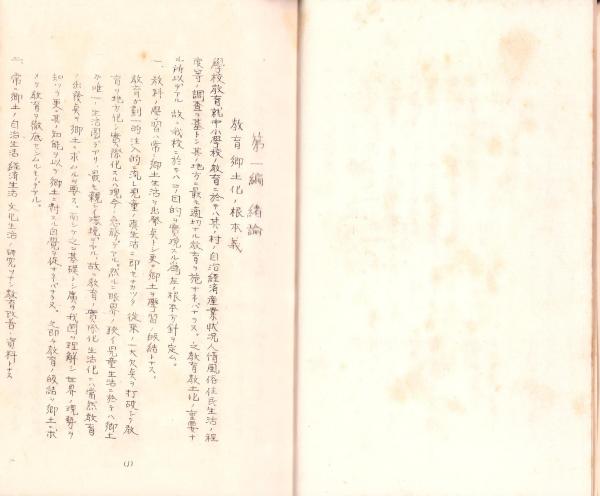 第一編 緒論
教育郷土化ノ根本義
學校教育就中小學校ノ教育ニ於テハ其ノ村ノ自治経済産業状況人情風俗住民生活ノ程
度等ノ調査ヲ基トシ其ノ地方ニ最モ適切ナル教育ヲ施サネバナラヌ。之教育郷土化ノ重要ナ
ル所以デアル 故ニ我校ニ於テハコノ目的ヲ實現スル為左ノ根本方針ヲ定ム。
一、教科ノ學習ハ常ニ郷土生活ヲ出發矣トシ更ニ郷土ヲ學習ノ帰結トナス。
教育ガ劃一的注入的ニ流レ児童ノ實生活ニ即セナカツタ従來ノ一大欠矣ヲ打破シテ教
育ヲ地方化シ實際化スルハ現今ノ急務デアル。然ルニ眼界ノ狭イ児童生活ニ於テハ郷土
ガ唯一ノ生活圏デアリ、最モ親シキ環境デアル。故ニ教育ノ實際化生活化ニハ當然教育
ノ出發矣ヲ郷土ニ求ムルヲ要ス。而シテ之ヲ基礎トシ廣ク我国ヲ理解シ世界ノ現勢ヲ
知ツテ更ニ其ノ知能ヲ以テ郷土ニ對スル自覺ヲ促サネバナラヌ。之即チ教育ノ帰結ヲ郷土ニ求
メテ教育ヲ徹底セシムルモノデアル。
二、常ニ郷土ノ自治生活経済生活文化生活ノ研究ヲナシ教育改善ノ資料トナス
(1)